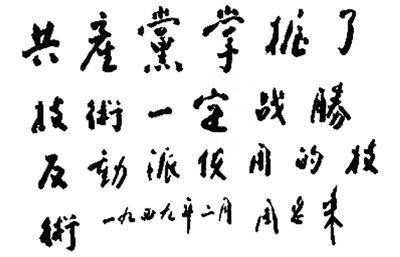 共產黨掌握了
技術一定战勝
反動派使用的技
術 一九四九年二月 周恩来